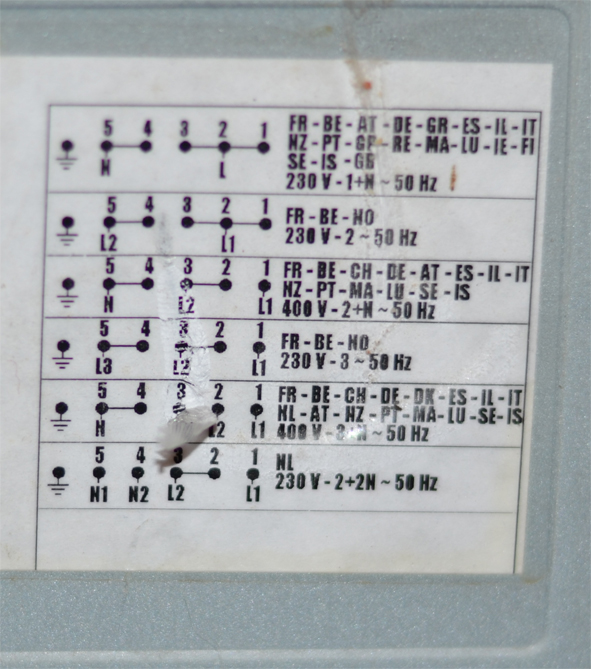 5 4 3 2 1
N L
FR - BE - AT - DE - GR - ES - IL - IT
NZ - PT - GF - RE - MA - LU - IE - FI
SE - IS - GB
230 V - 1+N ~ 50 Hz
5 4 3 2 1
L2 L1
FR - BE - NO
230 V - 2 ~ 50 Hz
5 4 3 2 1
N L2 L1
FR - BE - CH - DE - AT - ES - IL - IT
NZ - PT - MA - LU - SE - IS
400 V - 2+N ~ 50 Hz
5 4 3 2 1
L3 L2 L1
FR - BE - NO
230 V - 3 ~ 50 Hz
5 4 3 2 1
N L2 L1
FR - BE - CH - DE - DK - ES - IL - IT
NL - AT - NZ - PT - MA - LU - SE - IS
400 V - 3+N ~ 50 Hz
5 4 3 2 1
N1 N2 L2 L1
NL
230 V - 2+2N ~ 50 Hz